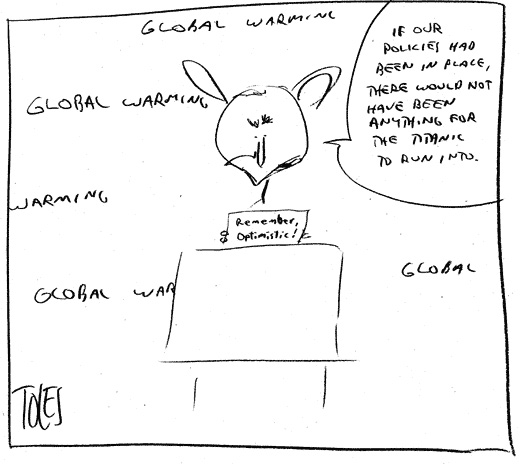 GLOBAL WARMING
IF OUR
POLICIES HAD
BEEN IN PLACE,
THERE WOULD NOT
HAVE BEEN
ANYTHING FOR
THE TITANIC
TO RUN INTO.
GLOBAL WARMING
WARMING
Remember,
Optimistic!
GLOBAL WAR
GLOBAL
TOLES